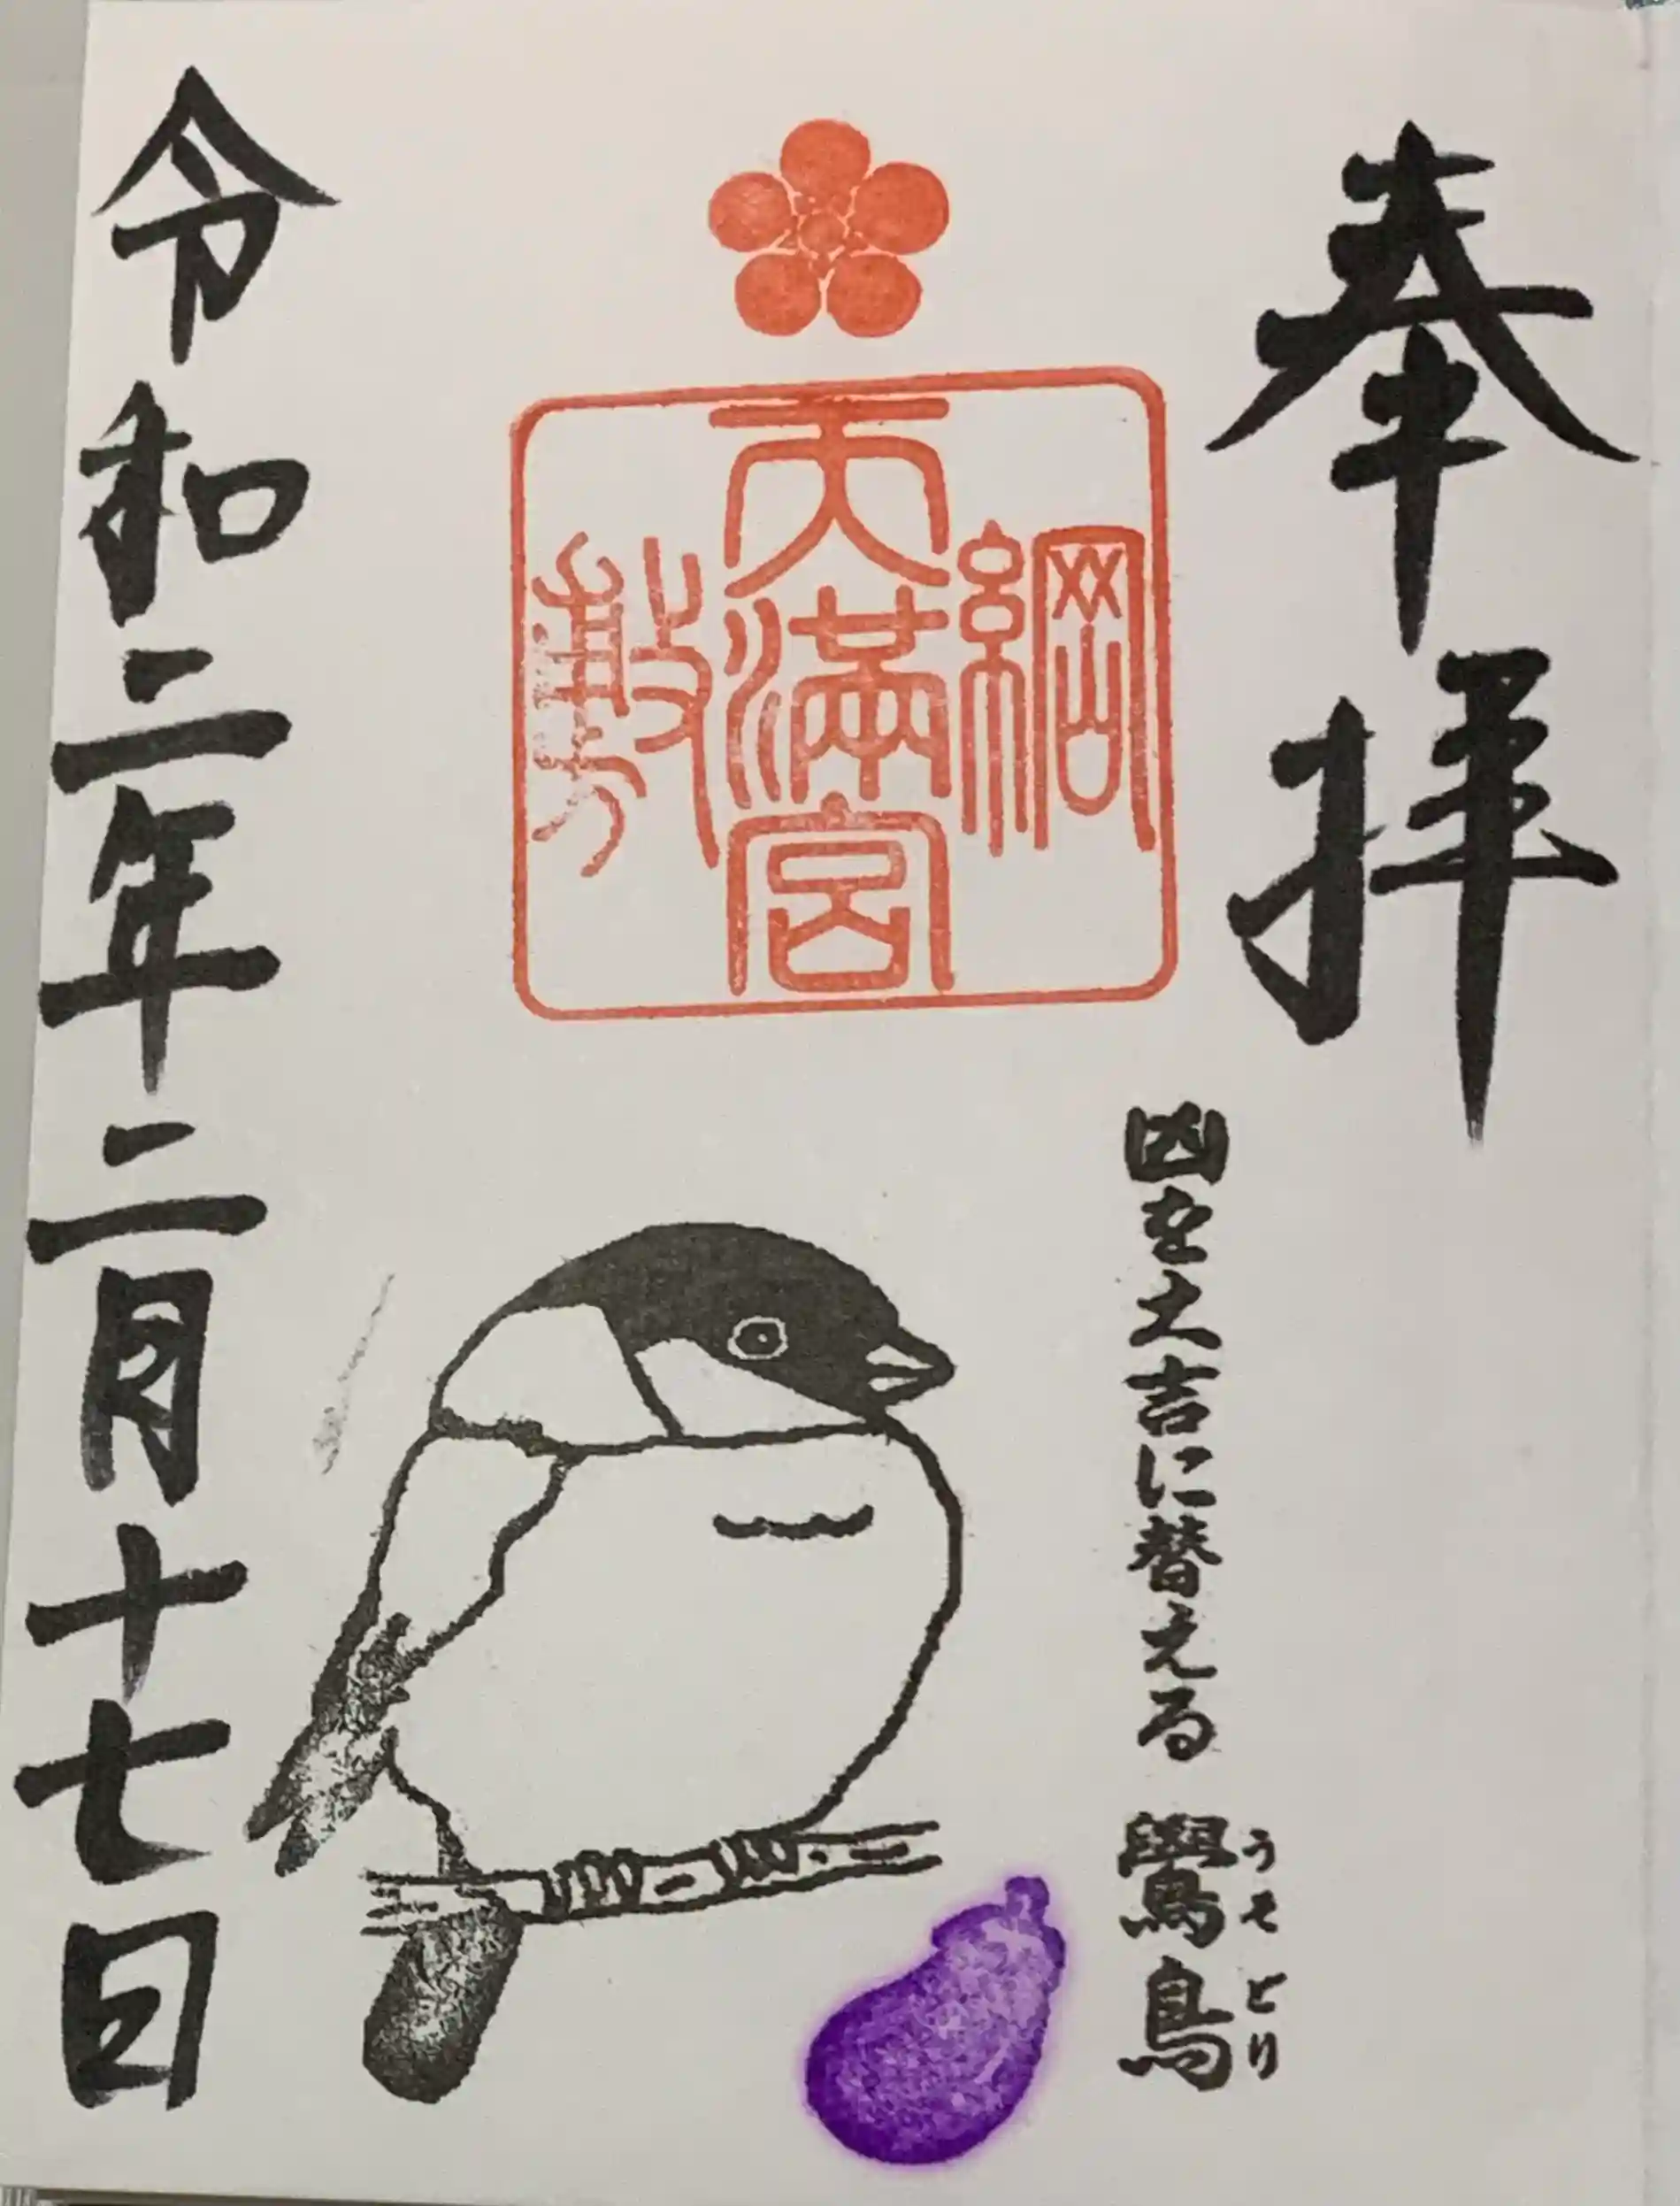 奉拝
凶を大吉に替える 鷽鳥
うそどり
綱
天満宮
敷
令和二年二月十七日